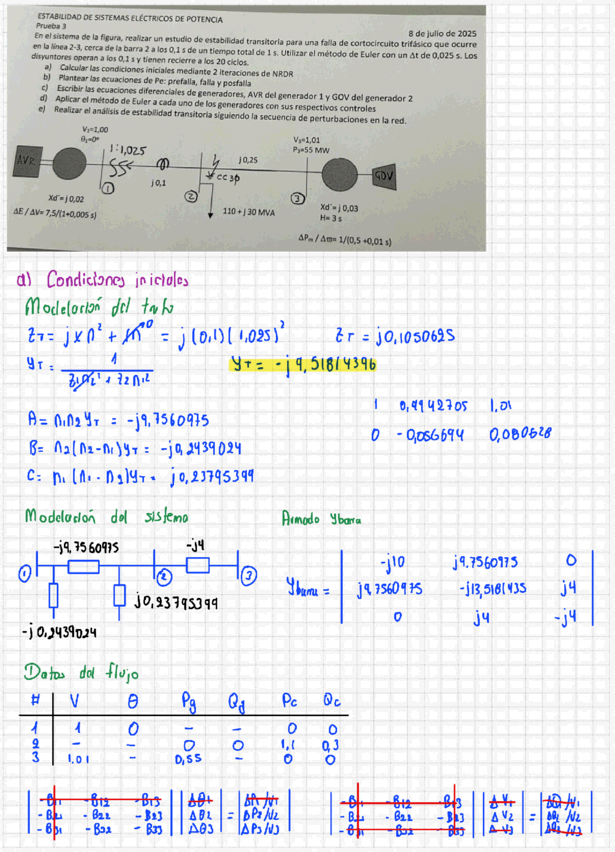 ESTABILIDAD DE SISTEMAS ELÉCTRICOS DE POTENCIA
Prueba 3
8 de julio de 2025
En el sistema de la figura, realizar un estudio de estabilidad transitoria para una falla de cortocircuito trifásico que ocurre
en la línea 2-3, cerca de la barra 2 a los 0,1 s de un tiempo total de 1 s. Utilizar el método de Euler con un Δt de 0,025 s. Los
disyuntores operan a los 0,1 s y tienen recierre a los 20 ciclos.
a) Calcular las condiciones iniciales mediante 2 iteraciones de NRDR
b) Plantear las ecuaciones de Pe: prefalla, falla y posfalla
c) Escribir las ecuaciones diferenciales de generadores, AVR del generador 1 y GOV del generador 2
d) Aplicar el método de Euler a cada uno de los generadores con sus respectivos controles
e) Realizar el análisis de estabilidad transitoria siguiendo la secuencia de perturbaciones en la red.
V₁=1,00
θ₁=0°
1:1,025
V₃=1,01
P₃=55 MW
AVR
j0,1
j0,25
CC 3φ
GOV
1
2
3
Xd'= j 0,02
110 + j 30 MVA
Xd'= j 0,03
H= 3 s
ΔE / ΔV= 7,5/(1+0,005 s)
ΔPₘ / Δω= 1/(0,5 +0,01 s)
a) Condiciones iniciales
Modelación del trafo
ZT = jXn² + jX⁰ = j(0,1)(1,025)² ZT = j0,1050625
YT = 1 / Z1n2² + Z2n1² YT = -j9,51814396
A = n1n2 YT = -j9,7560975
B = n2(n2-n1)YT = -j0,2439024
C = n1(n1-n2)YT = j0,23795399
1 0,9942705 1.01
0 -0,056694 0,080628
Modelación del sistema
Armado Ybarra
-j9,7560975 -j4
1 2 3
j0,23795399
-j0,2439024
Ybarra =
-j10 j9.7560975 0
j9,7560975 -j13,5181435 j4
0 j4 -j4
Datos del flujo
# V θ Pg Qg Pc Qc
1 1 0 - - 0 0
2 - - 0 0 1,1 0,3
3 1.01 - 0,55 - 0 0
-B11 -B12 -B13 Δθ1 = ΔP1/V1
-B21 -B22 -B23 Δθ2 = ΔP2/V2
-B31 -B32 -B33 Δθ3 ΔP3/V3
-B11 -B12 -B13 ΔV1 ΔQ1/V1
-B21 -B22 -B23 ΔV2 = ΔQ2/V2
-B31 -B32 -B33 ΔV3 ΔQ3/V3